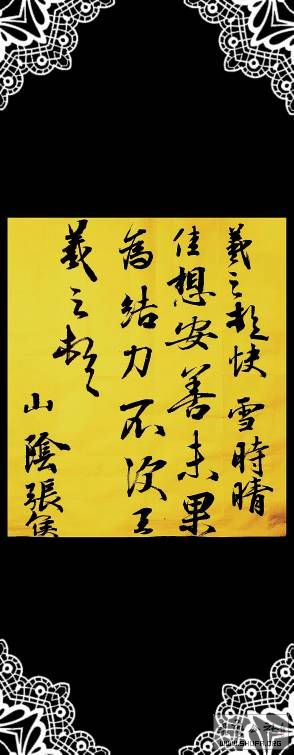 羲之頓首快雪時晴
佳想安善未果
為結力不次王
羲之頓首
山陰張侯
WWW.SHUFA.ORG